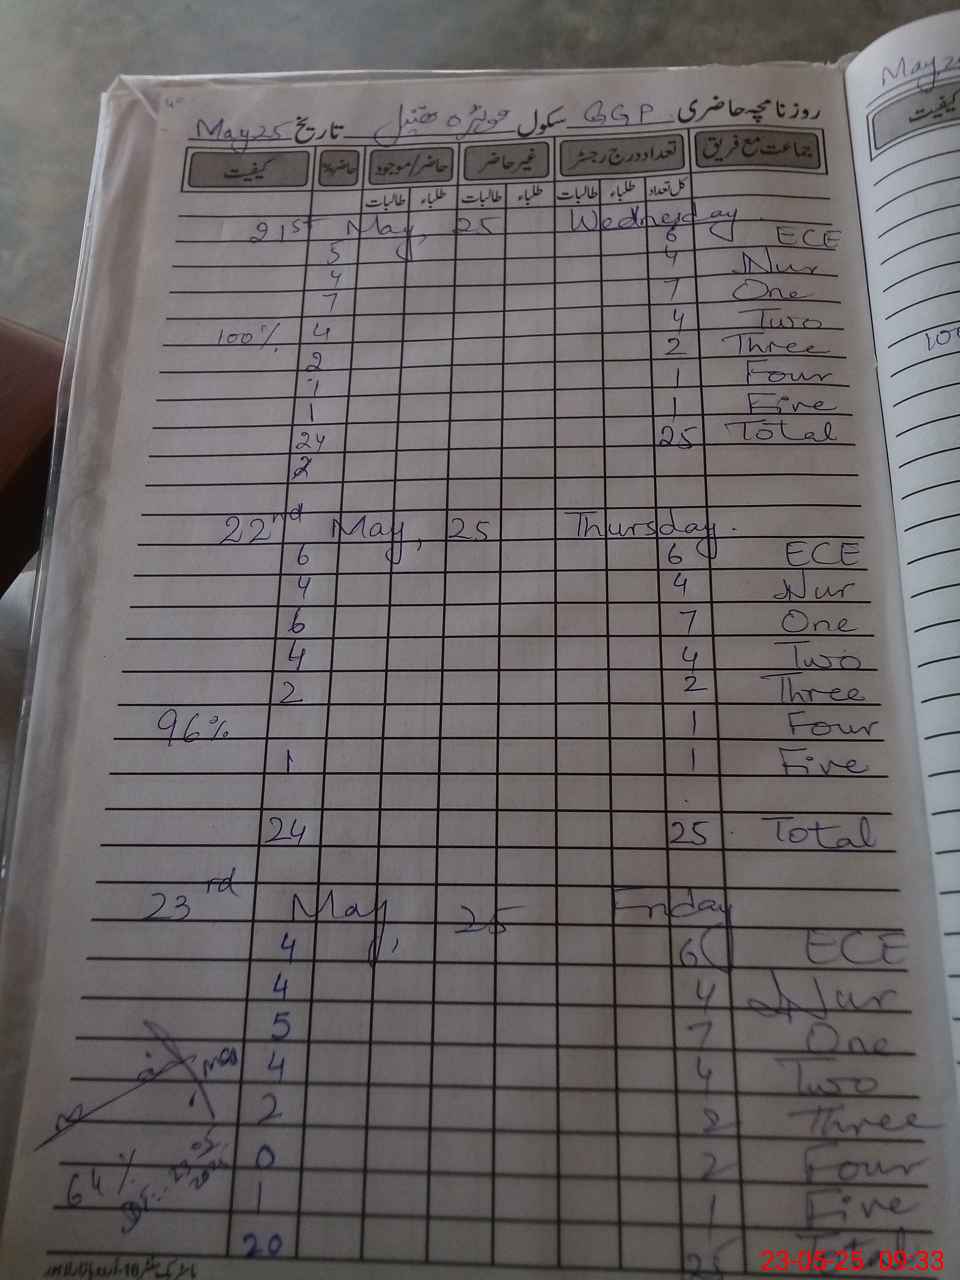 May 25
روزنامچہ حاضری GGP سکول تاریخ May 25
جماعت مع فریق تعداد درج رجسٹر غیر حاضر حاضر/موجود کیفیت
کل تعداد طلباء طالبات طلباء طالبات طلباء طالبات
کیفیت
21st May, 25 Wednesday
5 6 ECE
4 4 Nur
7 7 One
100% 4 4 Two
2 2 Three
1 1 Four
1 1 Five
24 25 Total
2
22nd May, 25 Thursday.
6 6 ECE
4 4 Nur
6 7 One
4 4 Two
2 2 Three
96% 1 Four
1 1 Five
24 25 Total
23rd May, 25 Friday
4 6 ECE
4 4 Nur
5 7 One
4 4 Two
2 2 Three
0 2 Four
64% 1 1 Five
20 25 Total
23-05-25 09:33